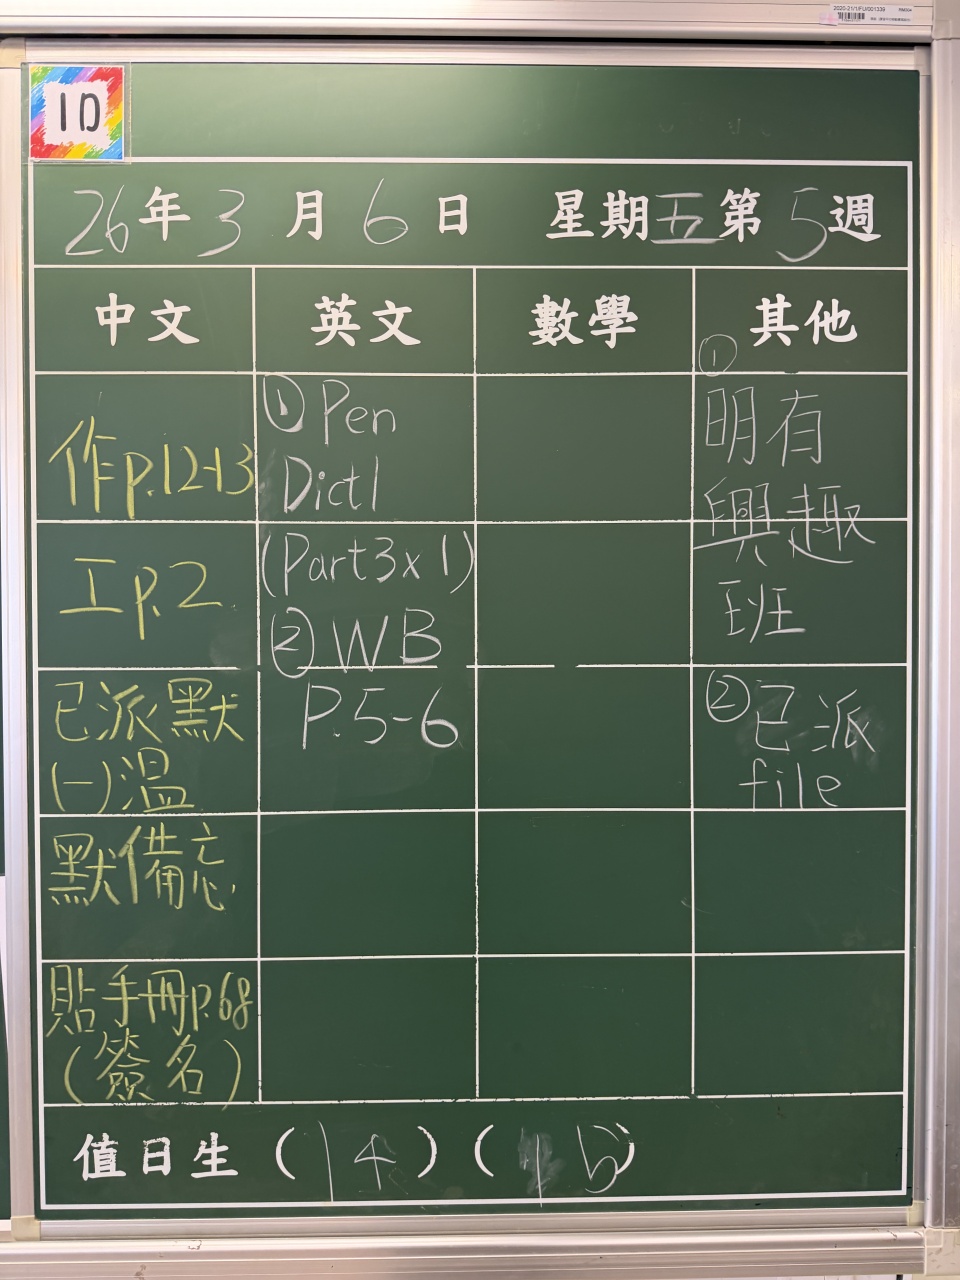 2020-21/1/FU/001339
1D
26年3月6日 星期五第5週
中文
英文
數學
其他
作p.12-13
工p.2
已派默
(一)溫
默備忘
貼手冊p.68
(簽名)
① Pen
Dict1
(Part3x1)
② WB
P.5-6
①
明有
興趣
班
② 已派
file
值日生 (14) (15)